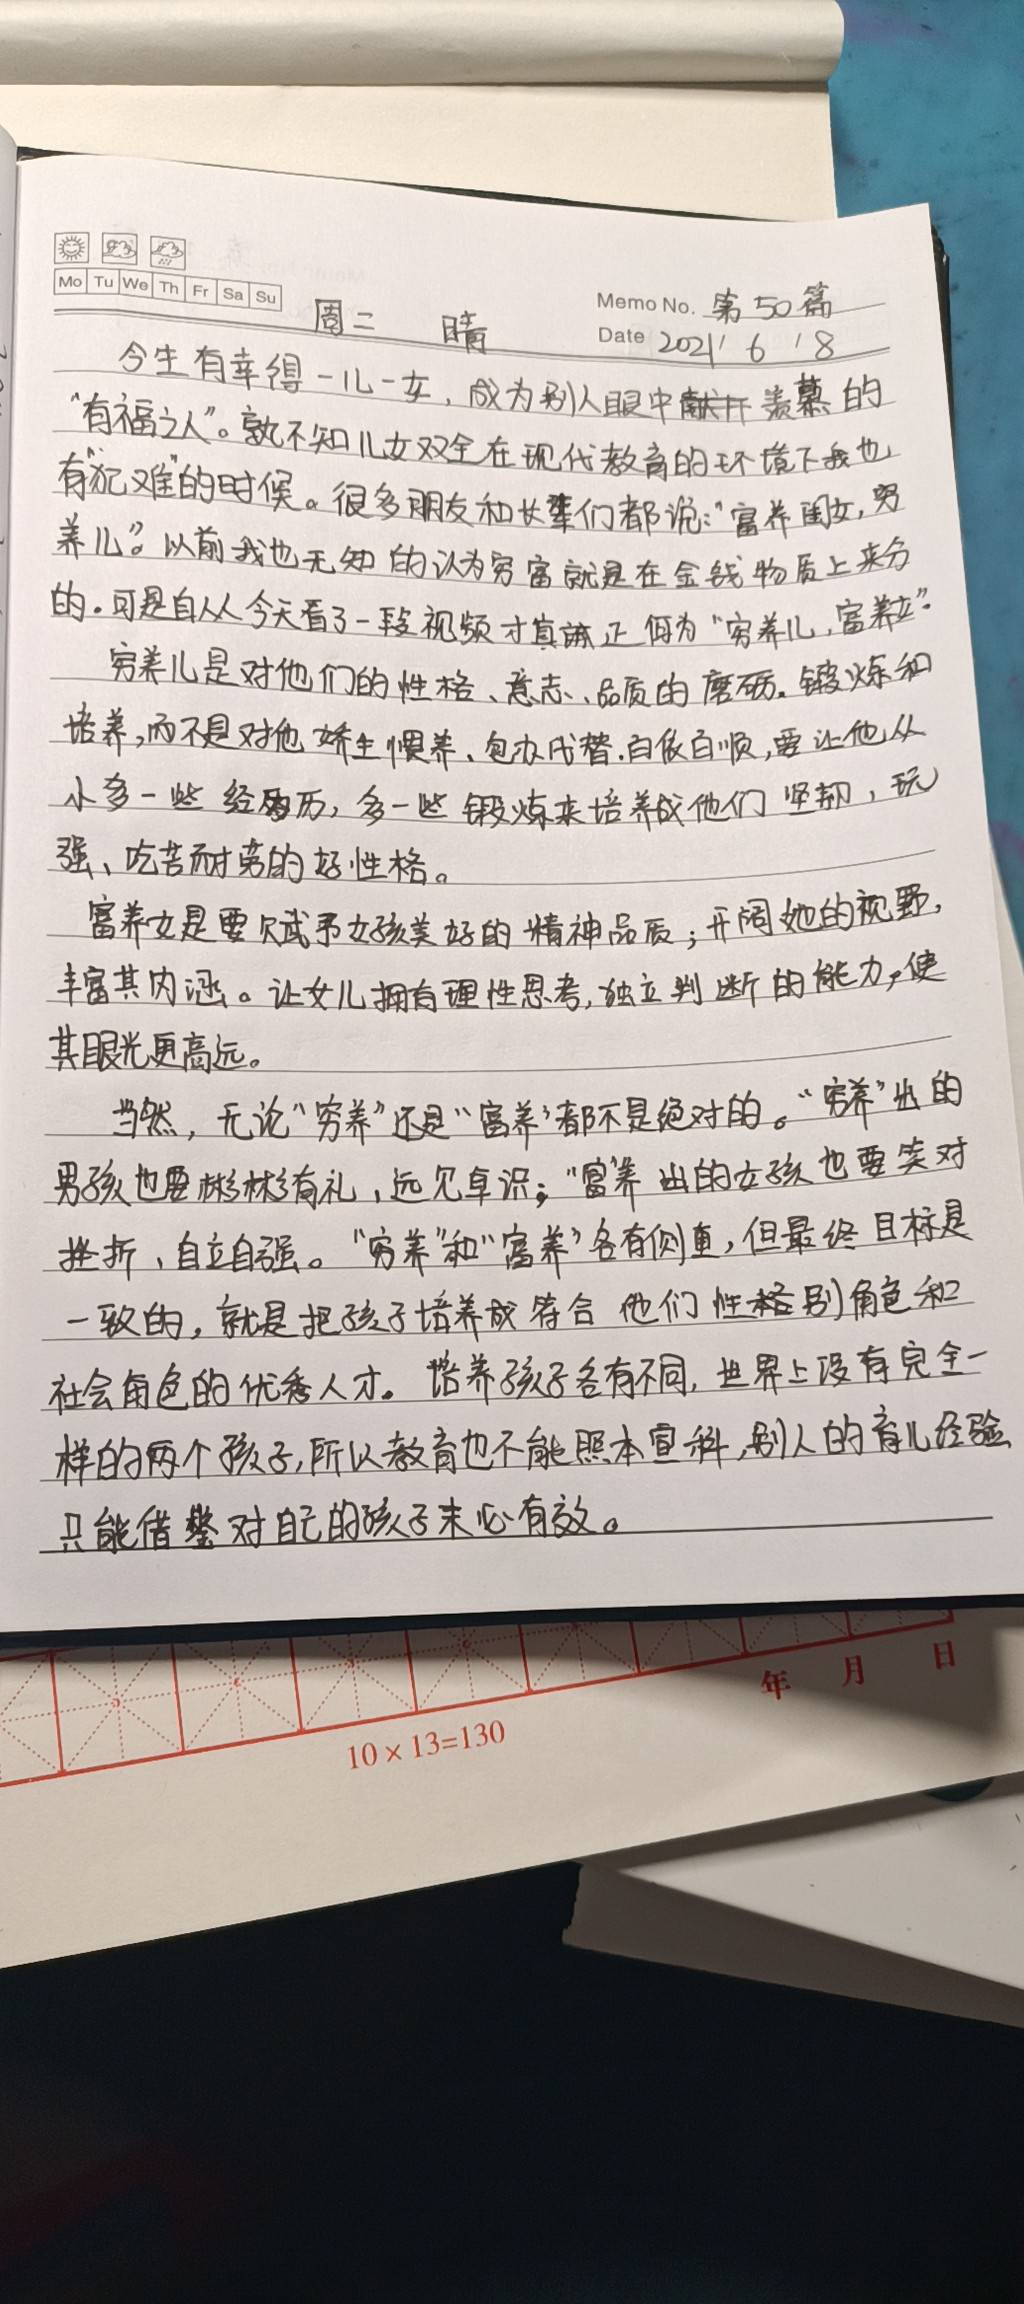 Mo Tu We Th Fr Sa Su
Memo No. 第50篇
周二 晴 Date 2021 / 6 / 8
今生有幸得一儿一女，成为别人眼中羡慕的
“有福之人”。孰不知儿女双全在现代教育的环境下我也
有“犯难”的时候。很多朋友和长辈们都说：“富养闺女，穷
养儿”。以前我也无知的认为穷富就是在金钱物质上来分
的。可是自从今天看了一段视频才真正何为“穷养儿，富养女”.
穷养儿是对他们的性格、意志、品质的磨砺.锻炼和
培养，而不是对他娇生惯养、包办代替.百依百顺，要让他从
小多一些经历，多一些锻炼来培养成他们坚韧，玩
强、吃苦耐劳的好性格。
富养女是要赋予女孩美好的精神品质；开阔她的视野，
丰富其内涵。让女儿拥有理性思考，独立判断的能力，使
其眼光更高远。
当然，无论“穷养”还是“富养”都不是绝对的。“穷养”出的
男孩也要彬彬有礼，远见卓识；“富养出的女孩也要笑对
挫折、自立自强。“穷养”和“富养”各有侧重，但最终目标是
一致的，就是把孩子培养成符合他们性别角色和
社会角色的优秀人才。培养孩子各有不同，世界上没有完全一
样的两个孩子，所以教育也不能照本宣科，别人的育儿经验
只能借鉴对自己的孩子未必有效。
年 月 日
10×13=130